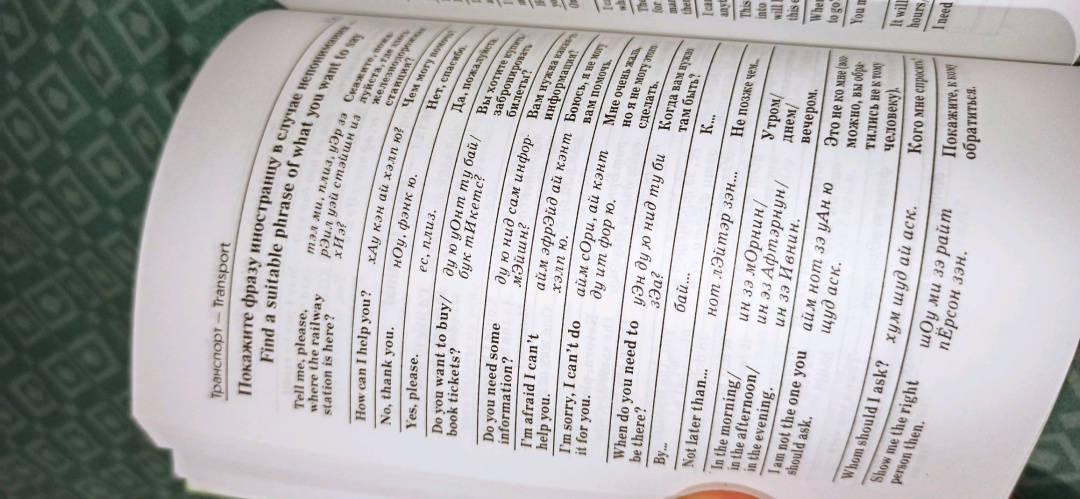 Транспорт – Transport
Покажите фразу иностранцу в случае непонимания
Find a suitable phrase of what you want to say
Tell me, please,
where the railway
station is here?
тэл ми, плиз, уЭр зэ
рЭил уэй стэйшн из
хИэ?
Скажите, пожа-
луйста, где здесь
железнодорожная
станция?
How can I help you?
хАу кэн ай хэлп ю?
Чем могу помочь?
No, thank you.
нОу, фэнк ю.
Нет, спасибо.
Yes, please.
ес, плиз.
Да, пожалуйста
Do you want to buy/
book tickets?
ду ю уОнт ту бай/
бук тИкетс?
Вы хотите купить/
забронировать
билеты?
Do you need some
information?
ду ю нид сам инфор-
мЭйшин?
Вам нужна какая-то
информация?
I'm afraid I can't
help you.
айм эфрЭйд ай кэнт
хэлп ю.
Боюсь, я не могу
вам помочь.
I'm sorry, I can't do
it for you.
айм сОри, ай кэнт
ду ит фор ю.
Мне очень жаль,
но я не могу этого
сделать.
When do you need to
be there?
уЭн ду ю нид ту би
зЭа?
Когда вам нужно
там быть?
By...
бай...
К...
Not later than...
нот лЭйтэр зэн...
Не позже чем...
In the morning/
in the afternoon/
in the evening.
ин зэ мОрнин/
ин эз Афтэрнун/
ин зэ Ивнин.
Утром/
днем/
вечером.
I am not the one you
should ask.
айм нот зэ уАн ю
щуд аск.
Это не ко мне (воз-
можно, вы обра-
тились не к тому
человеку).
Whom should I ask?
хум шуд ай аск.
Кого мне спросить?
Show me the right
person then.
шОу ми зэ райт
пЁрсон зэн.
Покажите, к кому
обратиться.
I can
This
into
will
this e
When
to go?
You m
It will
hours,
I need